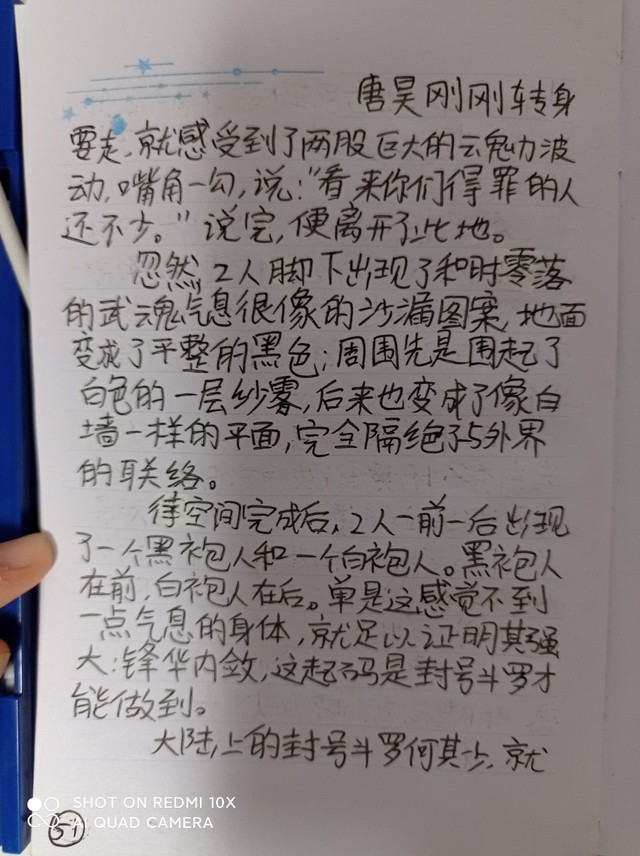 唐昊刚刚转身
要走,就感受到了两股巨大的云鬼力波
动,嘴角一勾,说:“看来你们得罪的人
还不少。”说完,便离开了此地。
忽然,2人脚下出现了和时零落
的武魂气息很像的沙漏图案,地面
变成了平整的黑色;周围先是围起了
白色的一层纱雾,后来也变成了像白
墙一样的平面,完全隔绝了与外界
的联络。
待空间完成后,2人一前一后出现
了一个黑袍人和一个白袍人。黑袍人
在前,白袍人在后。单是这感觉不到
一点气息的身体,就足以证明其强
大:锋华内敛,这起码是封号斗罗才
能做到。
大陆上的封号斗罗何其少,就
SHOT ON REDMI 10X
AI QUAD CAMERA
51